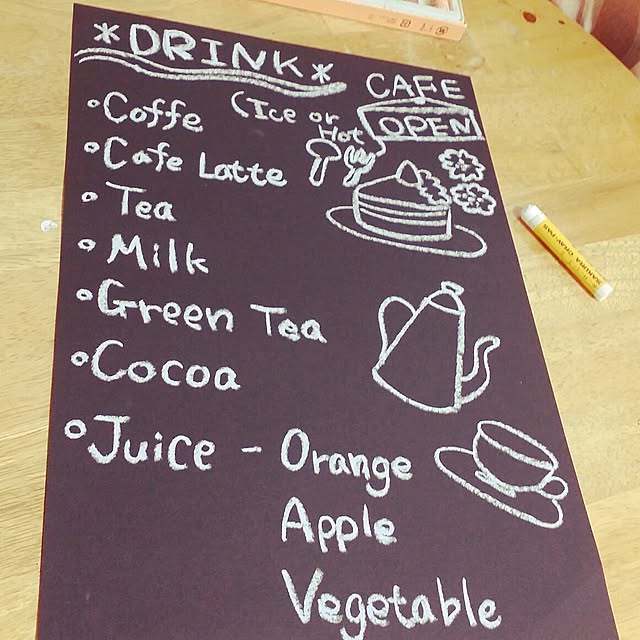 *DRINK*
CAFE
OPEN
•Coffe (Ice or Hot
•Cafe Latte
•Tea
•Milk
•Green Tea
•Cocoa
•Juice - Orange
Apple
Vegetable
SAKURA CRAY-PAS